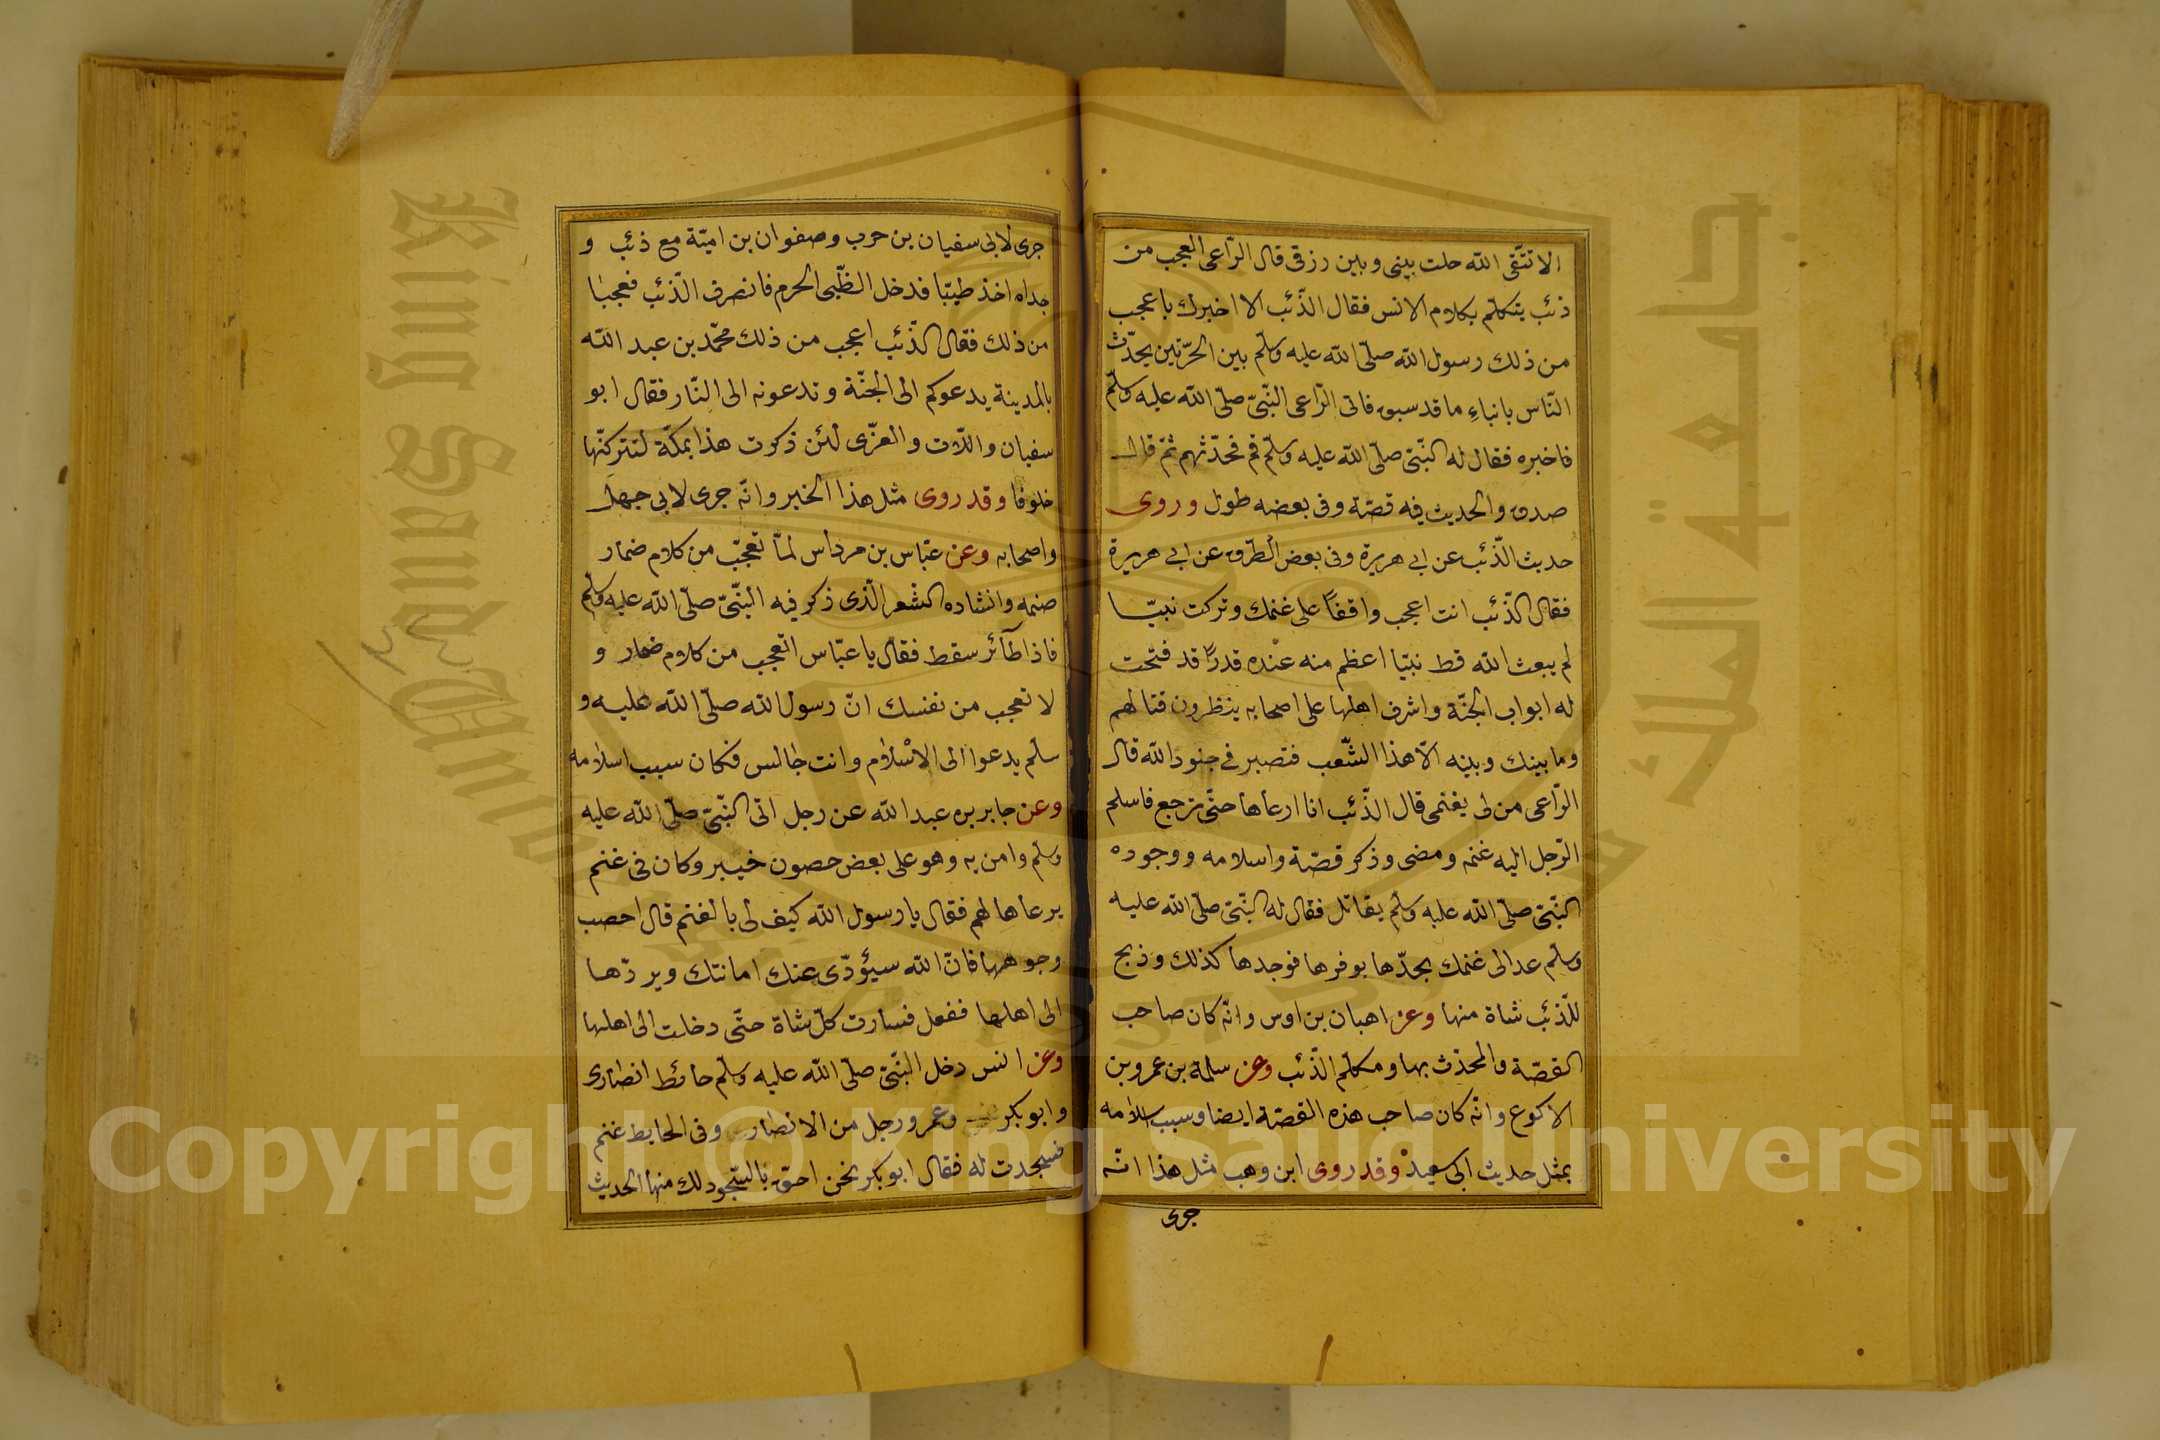 الا تتّقى اللّه حلت بينى وبين رزقى قال الرّاعى العجب من
ذئب يتكلّم بكلام الانس فقال الذّئب الا اخبرك باعجب
من ذلك رسول اللّه صلّى اللّه عليه وسلّم بين الحرّتين يحدّث
النّاس بانباءِ ما قد سبق فاتى الرّاعى النّبىّ صلّى اللّه عليه وسلّم
فاخبره فقال له النّبىّ صلّى اللّه عليه وسلّم قم فحدّثهم ثمّ قال
صدق والحديث فيه قصّة وفى بعضه طول وروى
حديث الذّئب عن ابى هريرة وفى بعض الطّرق عن ابى هريرة
فقال الذّئب انت اعجب واقفاً على غنمك وتركت نبيّا
لم يبعث اللّه قط نبيّا اعظم منه عنده قدرًا قد فتحت
له ابواب الجنّة واشرف اهلها على اصحابه ينظرون قتالهم
وما بينك وبينه الّا هذا الشّعب فتصير فى جنود اللّه قال
الرّاعى من لى بغنمى قال الذّئب انا ارعاها حتّى ترجع فاسلم
الرّجل اليه غنمه ومضى وذكر قصّة واسلامه ووجوده
النّبىّ صلّى اللّه عليه وسلّم يقاتل فقال له النّبىّ صلّى اللّه عليه
وسلّم عد الى غنمك تجدّها بوفرها فوجدها كذلك وذبح
للذّئب شاة منها وعن اهبان بن اوس وانّه كان صاحب
القصّة والمحدّث بها ومكلّم الذّئب وعن سلمة بن عمرو بن
الاكوع وانّه كان صاحب هذه القصّة ايضا وسبب اسلامه
بمثل حديث ابى سعيد وقد روى ابن وهب مثل هذا انّه
جرى
جرى لابى سفيان بن حرب وصفوان بن اميّة مع ذئب و
جداه اخذ ظبيا فدخل الظّبى الحرم فانصرف الذّئب فعجبا
من ذلك فقال الذّئب اعجب من ذلك محمّد بن عبد اللّه
بالمدينة يدعوكم الى الجنّة وتدعونه الى النّار فقال ابو
سفيان واللّات والعزّى لئن ذكرت هذا بمكّة لتتركنّها
خلوفا وقد روى مثل هذا الخبر وانّه جرى لابى جهل
واصحابه وعن عبّاس بن مرداس لمّا تعجّب من كلام ضمار
صنمه وانشاده الشعر الّذى ذكر فيه النّبىّ صلّى اللّه عليه وسلّم
فاذا طآئر سقط فقال يا عبّاس اتعجب من كلام ضمار و
لا تعجب من نفسك انّ رسول اللّه صلّى اللّه عليه و
سلّم يدعوا الى الاسلام وانت جالس فكان سبب اسلامه
وعن جابر بن عبد اللّه عن رجل اتى النّبىّ صلّى اللّه عليه
وسلّم وامن به وهو على بعض حصون خيبر وكان فى غنم
يرعاها لهم فقال يا رسول اللّه كيف لى بالغنم قال احصب
وجوهها فانّ اللّه سيؤدّى عنك امانتك ويردّها
الى اهلها ففعل فسارت كلّ شاة حتّى دخلت الى اهلها
وعن انس دخل النّبىّ صلّى اللّه عليه وسلّم حائط انصارى
وابو بكر وعمر ورجل من الانصار وفى الحايط غنم
فسجدت له فقال ابو بكر نحن احقّ بالسّجود لك منها الحديث
جامعة الملك
King Saud
Copyright © King Saud University